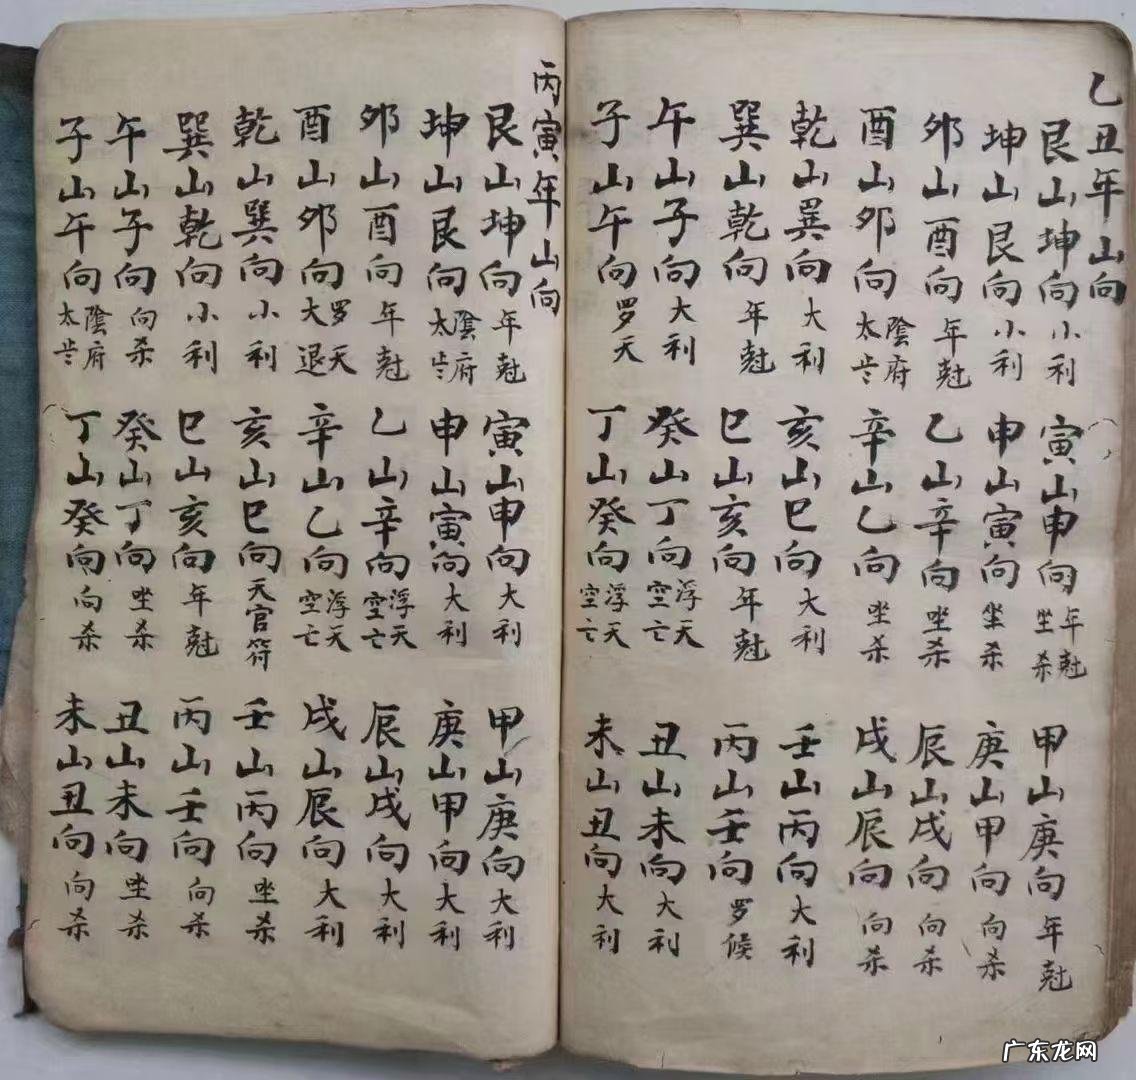 乙丑年山向
艮山坤向小利 寅山申向年尅坐杀 甲山庚向年尅
坤山艮向小利 申山寅向坐杀 庚山甲向向杀
卯山酉向年尅 乙山辛向坐杀 辰山戌向向杀
酉山卯向陰府太岁 辛山乙向坐杀 戌山辰向向杀
乾山巽向大利 亥山巳向大利 壬山丙向大利
巽山乾向年尅 巳山亥向年尅 丙山壬向罗候
午山子向大利 癸山丁向浮天空亡 丑山未向大利
子山午向罗天 丁山癸向浮天空亡 未山丑向大利
丙寅年山向
艮山坤向年尅 寅山申向大利 甲山庚向大利
坤山艮向陰府太岁 申山寅向大利 庚山甲向大利
卯山酉向年尅 乙山辛向浮天空亡 辰山戌向大利
酉山卯向罗天大退 辛山乙向浮天空亡 戌山辰向大利
乾山巽向小利 亥山巳向天官符 壬山丙向坐杀
巽山乾向小利 巳山亥向年尅 丙山壬向向杀
午山子向向杀 癸山丁向坐杀 丑山未向坐杀
子山午向陰府太岁 丁山癸向向杀 未山丑向向杀
广东龙网